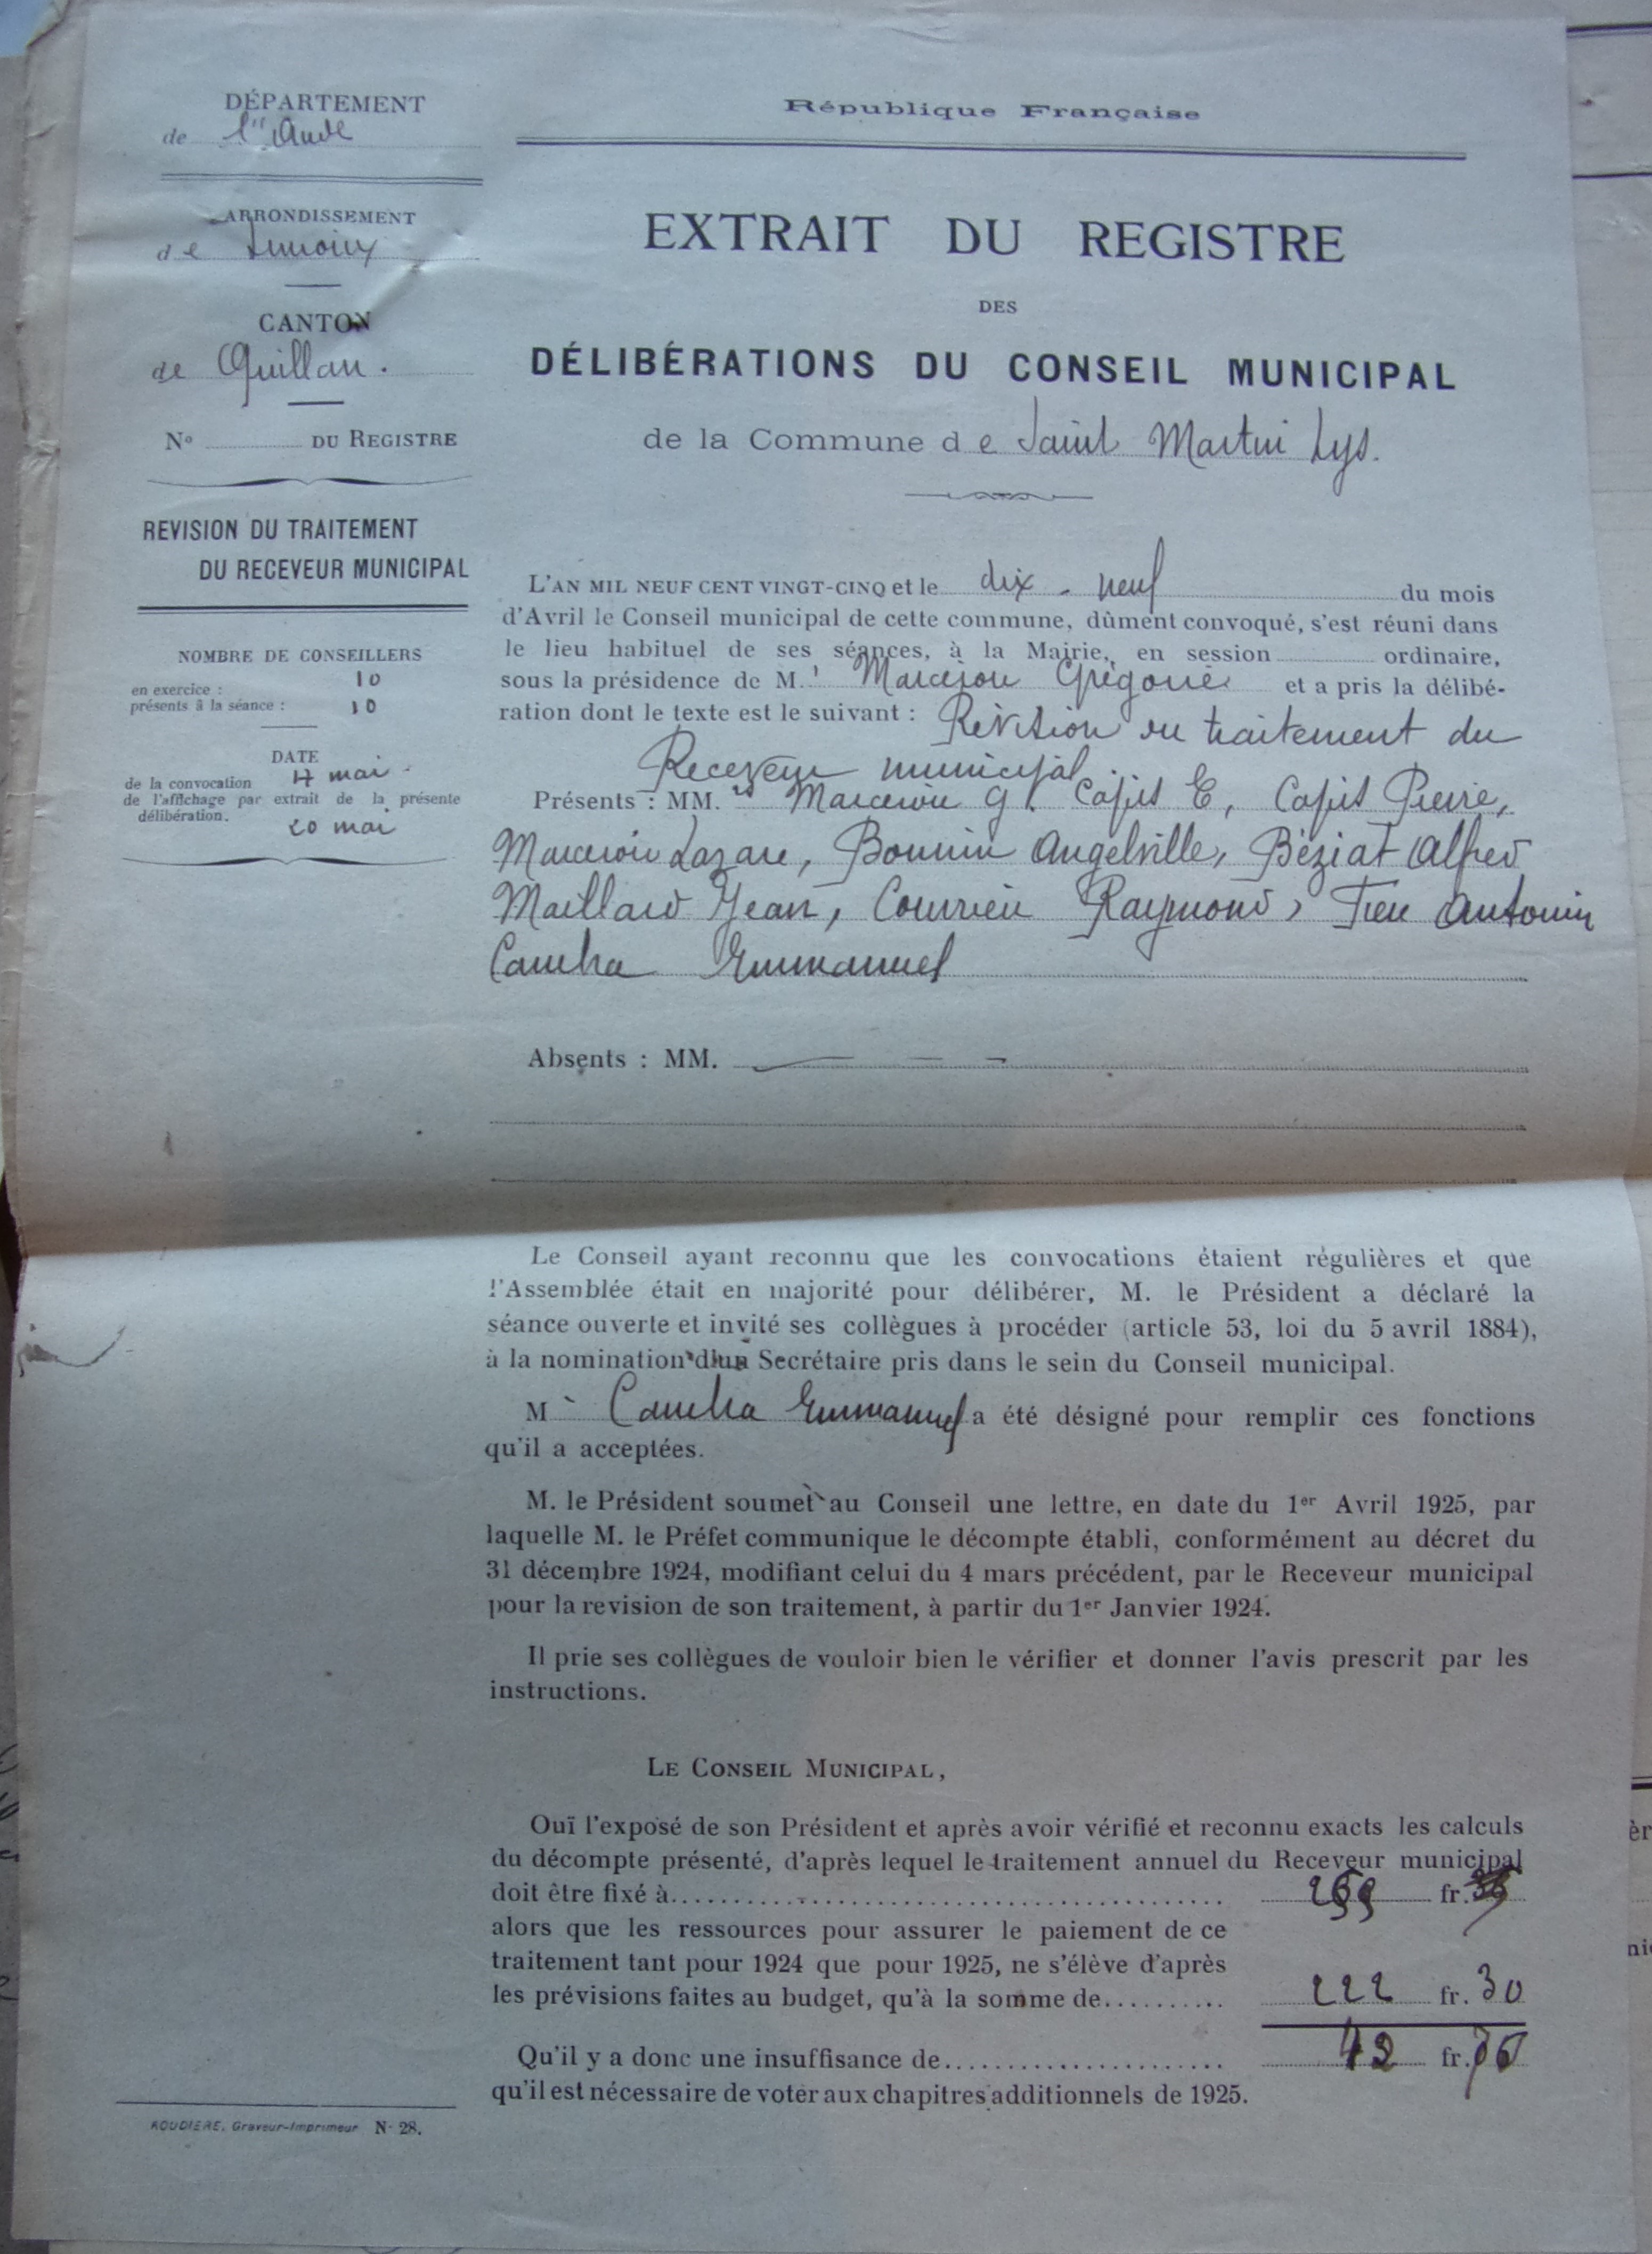 DÉPARTEMENT
de l'Aude
ARRONDISSEMENT
de Limoux
CANTON
de Quillan.
N° DU REGISTRE
REVISION DU TRAITEMENT
DU RECEVEUR MUNICIPAL
NOMBRE DE CONSEILLERS
en exercice : 10
présents à la séance : 10
DATE
de la convocation 4 mai
de l'affichage par extrait de la présente
délibération. 20 mai
ROUDIERE, Graveur-Imprimeur N° 28.
République Française
EXTRAIT DU REGISTRE
DES
DÉLIBÉRATIONS DU CONSEIL MUNICIPAL
de la Commune de Saint Martin Lys.
L'AN MIL NEUF CENT VINGT-CINQ et le dix-neuf du mois
d'Avril le Conseil municipal de cette commune, dûment convoqué, s'est réuni dans
le lieu habituel de ses séances, à la Mairie, en session ordinaire,
sous la présidence de M. Marcerou Grégoire et a pris la délibé-
ration dont le texte est le suivant : Révision du traitement du
Receveur municipal
Présents : MM. Marcerou G. Capis E, Capis Pierre,
Marcerou Lazare, Bonnin Angelville, Béziat Alfred
Maillard Jean, Courrieu Raymond, Antonin
Emmanuel
Absents : MM. — — —
Le Conseil ayant reconnu que les convocations étaient régulières et que
l'Assemblée était en majorité pour délibérer, M. le Président a déclaré la
séance ouverte et invité ses collègues à procéder (article 53, loi du 5 avril 1884),
à la nomination d'un Secrétaire pris dans le sein du Conseil municipal.
M Emmanuel a été désigné pour remplir ces fonctions
qu'il a acceptées.
M. le Président soumet au Conseil une lettre, en date du 1er Avril 1925, par
laquelle M. le Préfet communique le décompte établi, conformément au décret du
31 décembre 1924, modifiant celui du 4 mars précédent, par le Receveur municipal
pour la revision de son traitement, à partir du 1er Janvier 1924.
Il prie ses collègues de vouloir bien le vérifier et donner l'avis prescrit par les
instructions.
LE CONSEIL MUNICIPAL,
Ouï l'exposé de son Président et après avoir vérifié et reconnu exacts les calculs
du décompte présenté, d'après lequel le traitement annuel du Receveur municipal
doit être fixé à fr.
alors que les ressources pour assurer le paiement de ce
traitement tant pour 1924 que pour 1925, ne s'élève d'après
les prévisions faites au budget, qu'à la somme de 222 fr. 30
Qu'il y a donc une insuffisance de fr.
qu'il est nécessaire de voter aux chapitres additionnels de 1925.